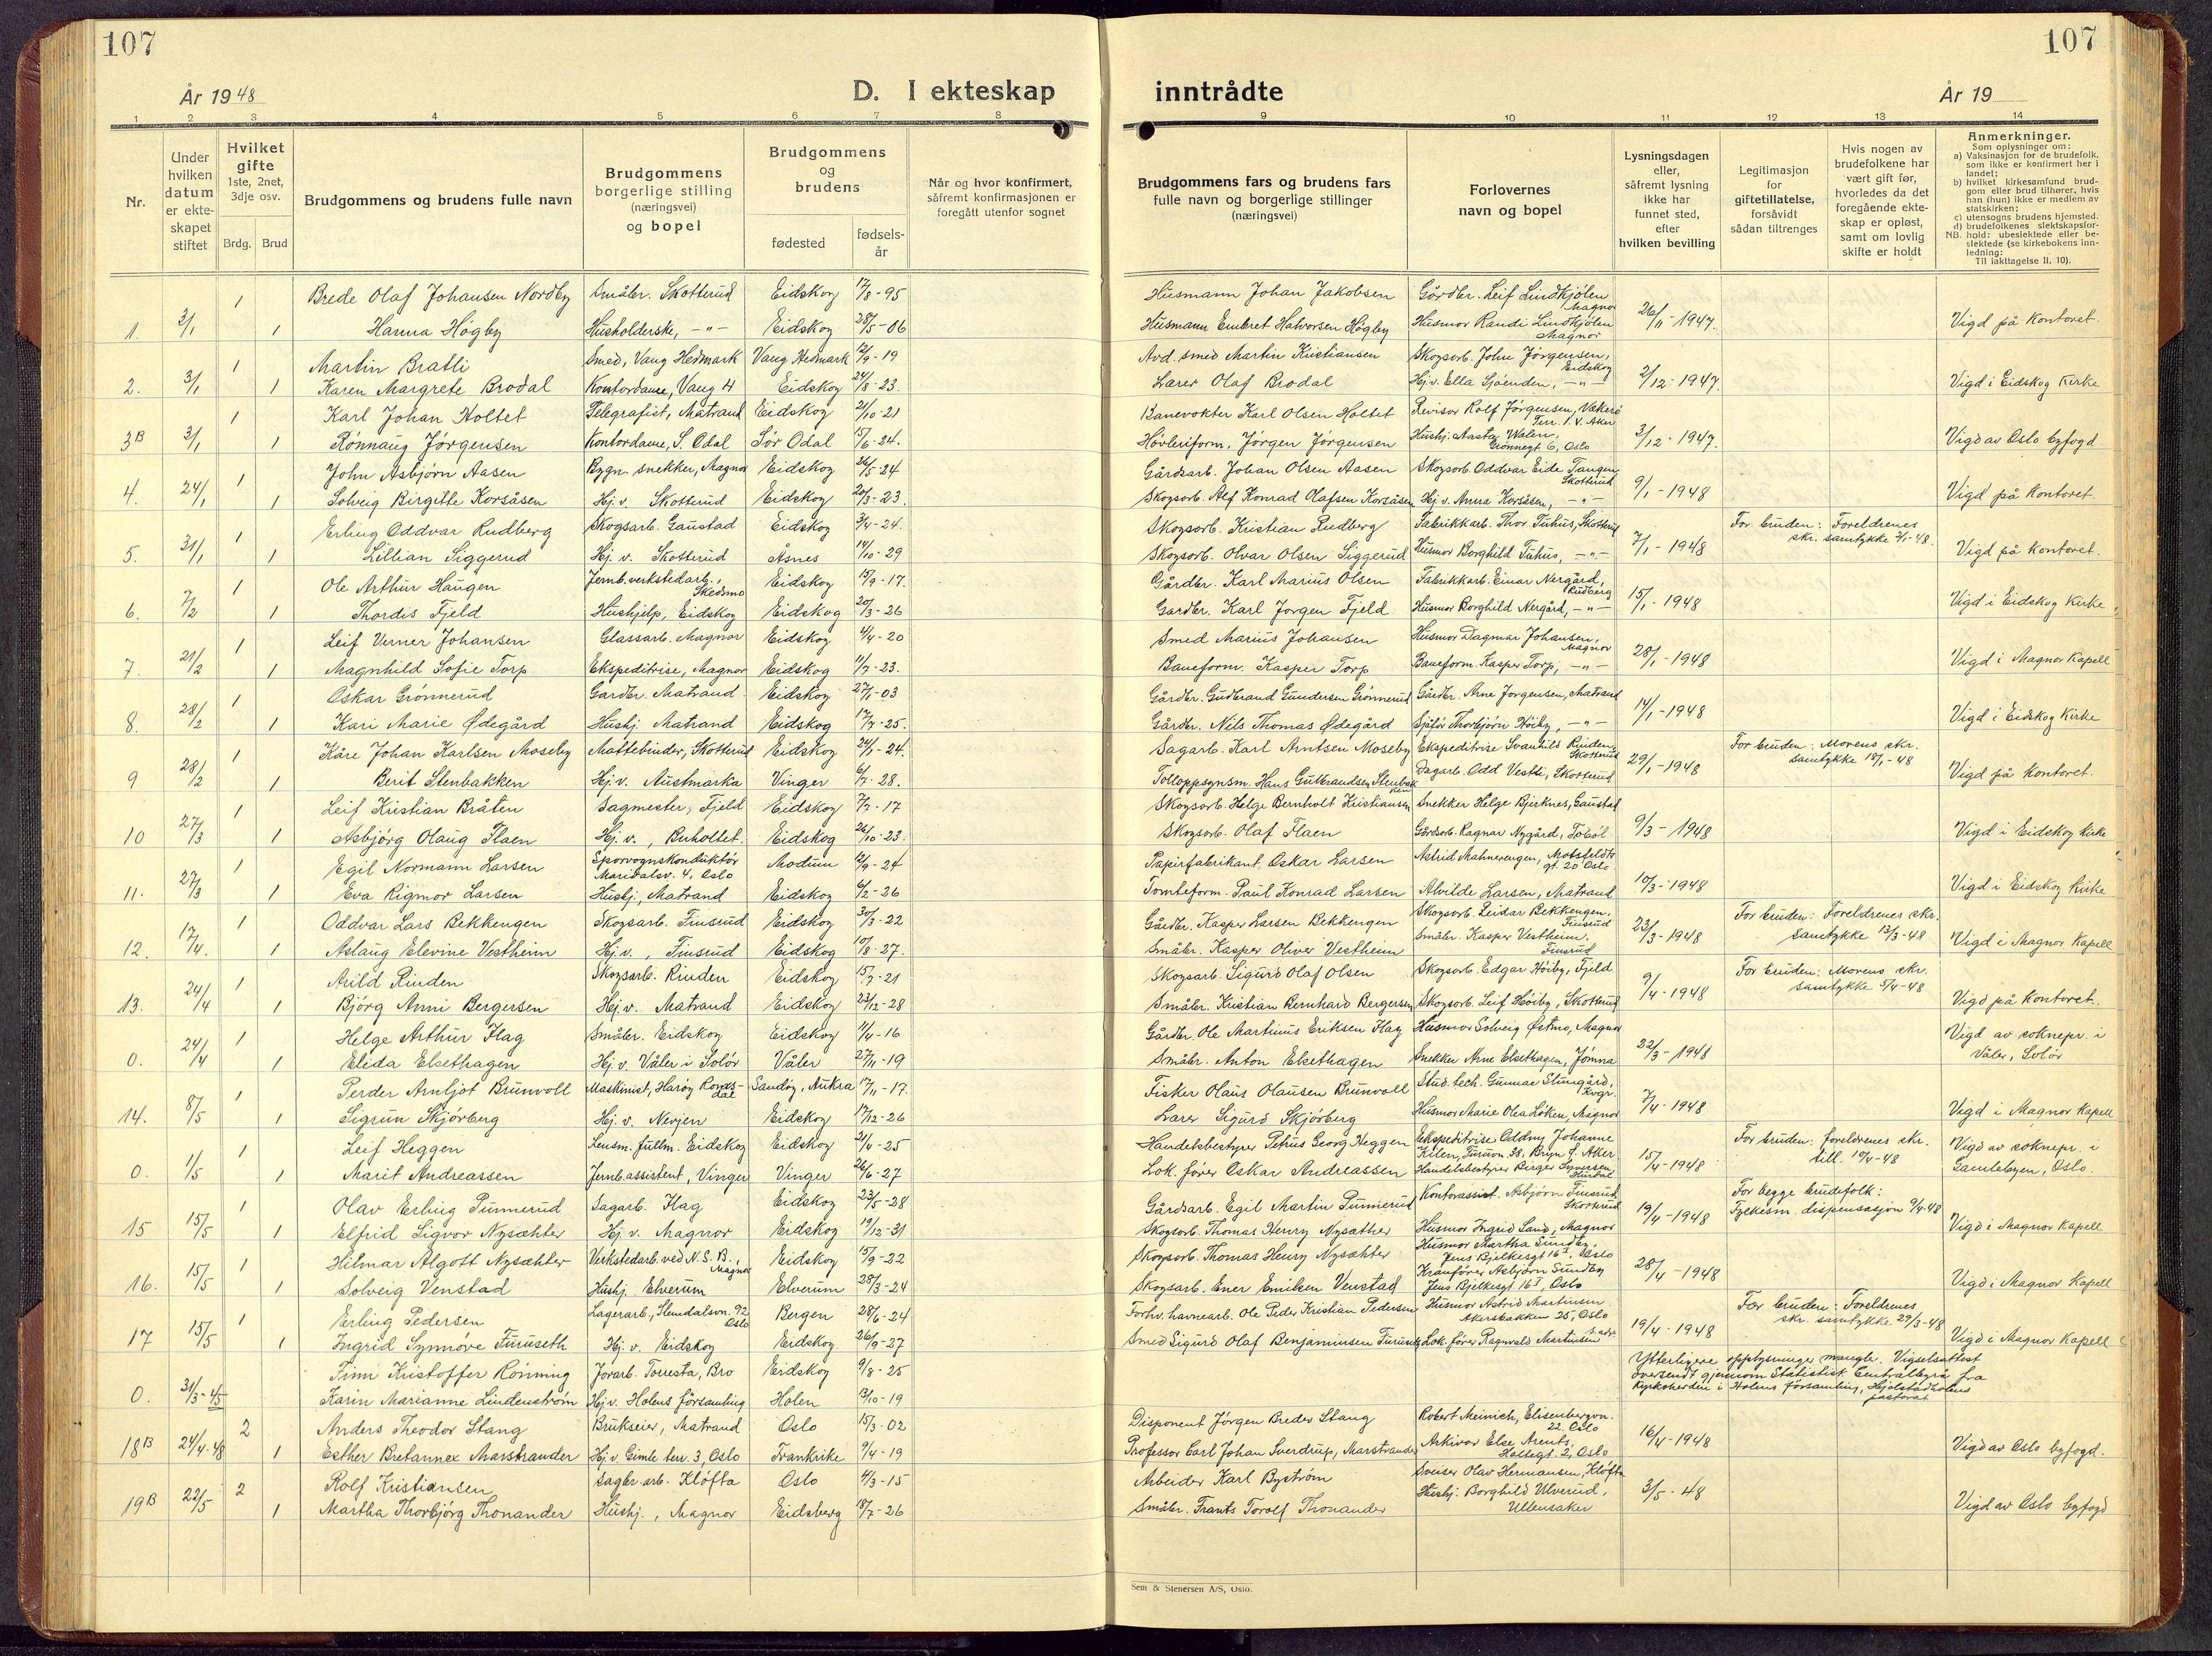 107
107
År 1948
D. I ekteskap
inntrådte
År 19
1 2 3 4 5 6 7 8 9 10 11 12 13 14
Nr.
Under hvilken datum er ekteskapet stiftet
Hvilket gifte 1ste, 2net, 3dje osv.
Brdg. Brud
Brudgommens og brudens fulle navn
Brudgommens borgerlige stilling (næringsvei) og bopel
Brudgommens og brudens
fødested
fødselsår
Når og hvor konfirmert, såfremt konfirmasjonen er foregått utenfor sognet
Brudgommens fars og brudens fars fulle navn og borgerlige stillinger (næringsvei)
Forlovernes navn og bopel
Lysningsdagen eller, såfremt lysning ikke har funnet sted, efter hvilken bevilling
Legitimasjon for giftetillatelse, forsåvidt sådan tiltrenges
Hvis nogen av brudefolkene har vært gift før, hvorledes da det foregående ekteskap er opløst, samt om lovlig skifte er holdt
Anmerkninger.
Som oplysninger om:
a) Vaksinasjon for de brudefolk, som ikke er konfirmert her i landet;
b) hvilket kirkesamfund brudgom eller brud tilhører, hvis han (hun) ikke er medlem av statskirken;
c) utensogns brudens hjemsted.
d) brudefolkenes slektskapsforhold: ubeslektede eller beslektede (se kirkebokens innledning:
NB.
Til iakttagelse II. 10).
1 Brede Olaf Johansen Nordby Småbr. Skotterud Eidskog 17/8-95 Husmann Johan Jakobsen Gårdbr. Leif Lindkjølen Magnor
1. 3/1 1 Hanna Høgby Husholderske, -"- Eidskog 28/5-06 Husmann Embret Halvorsen Høgby Husmor Randi Lindkjølen Magnor 26/11-1947. Vigd på kontoret.
1 Martin Bratli Smed, Vang Hedmark Vang Hedmark 12/9-19 Avd. smed Martin Kristiansen Skogsarb. John Jørgensen, Eidskog
2. 3/1 1 Karen Margrete Brodal Kontordame, Vang H Eidskog 24/8-23. Lærer Olaf Brodal Hj.v. Ella Sjøenden, -"- 2/12-1947. Vigd i Eidskog Kirke
1 Karl Johan Holtet Telegrafist, Matrand Eidskog 21/10-21 Banevokter Karl Olsen Holtet Revisor Rolf Jørgensen, Vækerø Terr. 1. V. Aker
3B 3/1 1 Rønnaug Jørgensen Kontordame, S. Odal Sør Odal 15/6-24. Høvleriform. Jørgen Jørgensen Hushj. Aasta Walen, Grønnegt 6, Oslo 3/12-1947. Vigd av Oslo byfogd
1 John Asbjørn Aasen Bygn. snekker, Magnor Eidskog 26/5-24 Gårdsarb. Johan Olsen Aasen Skogsarb Oddvar Eide Tangen Skotterud
4. 24/1 1 Solveig Birgitte Korsåsen Hj.v. Skotterud Eidskog 20/3-23. Skogsarb. Alf Konrad Olafsen Korsåsen Hj.v. Anna Korsåsen, -"- 9/1-1948 Vigd på kontoret.
1 Erling Oddvar Rudberg Skogsarb. Gaustad Eidskog 3/4-24. Skogsarb. Kristian Rudberg Fabrikkarb. Thor Tuhus, Skotterud For bruden: Foreldrenes skr. samtykke 2/1-48.
5. 31/1 1 Lillian Siggerud Hj.v. Skotterud Åsnes 14/10-29 Skogsarb. Olvar Olsen Siggerud Husmor Borghild Tuhus, -"- 7/1-1948 Vigd på kontoret.
1 Ole Arthur Haugen Jernb.verkstedarb., Skedsmo Eidskog 15/9-17. Gårdbr. Karl Marius Olsen Fabrikkarb. Einar Nergård, Rudberg
6. 7/2 1 Thordis Fjeld Hushjelp, Eidskog Eidskog 20/3-26 Gardbr. Karl Jørgen Fjeld Husmor Borghild Nergård, -"- 15/1-1948 Vigd i Eidskog Kirke
1 Leif Verner Johansen Glassarb. Magnor Eidskog 4/4-20 Smed Marius Johansen Husmor Dagmar Johansen, Magnor
7. 21/2 1 Magnhild Sofie Torp Ekspeditrise, Magnor Eidskog 11/7-23. Baneform. Kasper Torp Baneform. Kasper Torp, -"- 28/1-1948 Vigd i Magnor Kapell
1 Oskar Grønnerud Gardbr. Matrand Eidskog 27/1-03 Gårdbr. Gudbrand Gundersen Grønnerud Gårdbr. Arne Jørgensen, Matrand
8. 28/2 1 Kari Marie Ødegård Hushj. Matrand Eidskog 17/7-25. Gårdbr. Nils Thomas Ødegård Sjåfør Thorbjørn Høiby, -"- 14/1-1948 Vigd i Eidskog Kirke
1 Kåre Johan Karlsen Moseby Mattebinder, Skotterud Eidskog 24/1-24. Sagarb. Karl Arntsen Moseby Ekspeditrise Svanhild Rinden, Skotterud For bruden: Morens skr. samtykke 18/1-48
9 28/2 1 Berit Stenbakken Hj.v. Austmarka Vinger 6/7-28. Tolloppsynsm. Hans Gulbrandsen Stenbakken Dagarb. Odd Vestli, Skotterud 29/1-1948 Vigd på kontoret.
1 Leif Kristian Bråten Sagmester, Fjeld Eidskog 7/7-17 Skogsarb. Helge Bernholt Kristiansen Snekker Helge Bjerknes, Gaustad
10 27/3 1 Asbjørg Olaug Flaen Hj.v., Buholtet. Eidskog 26/10-23. Skogsarb. Olaf Flaen Gårdsarb. Ragnar Nygård, Tobøl 9/3-1948 Vigd i Eidskog kirke
1 Egil Normann Larsen Sporvognskonduktør Maridalsv. 4, Oslo Modum 12/9-24 Papirfabrikant Oskar Larsen Astrid Mahnerengen, Motsfeldts gt. 20 Oslo
11. 27/3 1 Eva Rigmor Larsen Hushj. Matrand Eidskog 6/2-26 Tomteform. Paul Konrad Larsen Alvilde Larsen, Matrand 10/3-1948 Vigd i Eidskog kirke
1 Oddvar Lars Bekkengen Skogsarb. Finsrud Eidskog 30/3-22 Gårdbr. Kasper Larsen Bekkengen Skogsarb. Reidar Bekkengen. Finsrud For bruden: Foreldrenes skr. samtykke 13/3-48
12. 17/4. 1 Aslaug Elevine Vestheim Hj.v., Finsrud Eidskog 10/8-27. Småbr. Kasper Oliver Vestheim Småbr. Kasper Vestheim, Finsrud 23/3-1948 Vigd i Magnor Kapell
1 Arild Rinden Skogsarb. Rinden Eidskog 15/7-21 Skogsarb. Sigurd Olaf Olsen Skogsarb. Edgar Høiby, Fjeld For bruden: Morens skr. samtykke 5/4-48
13. 24/4 1 Bjørg Anni Bergersen Hj.v. Matrand Eidskog 23/12-28 Småbr. Kristian Bernhard Bergersen Skogsarb. Leif Høiby, Skotterud 9/4-1948 Vigd på kontoret.
1 Helge Arthur Flag Småbr. Eidskog Eidskog 11/4-16 Gårdbr. Ole Martinus Eriksen Flag Husmor Solveig Østmo, Magnor Vigd av soknepr. i
0. 24/4 1 Elida Elsethagen Hj.v. Våler i Solør Våler 27/11-19 Småbr. Anton Elsethagen Snekker Arne Elsethagen, Jømna 22/3-1948 Våler, Solør
1 Perder Arnljot Brunvoll Maskinist, Harøy Romsdal Sandøy, Aukra 17/11-17. Fisker Olaus Olausen Brunvoll Stud. tech. Gunnar Stungård, Kvgr.
14. 8/5 1 Sigrun Skjørberg Hj.v. Nevjen Eidskog 17/12-26 Lærer Sigurd Skjørberg Husmor Marie Olea Løken, Magnor 7/4-1948 Vigd i Magnor Kapell
1 Leif Heggen Lensm. fullm. Eidskog Eidskog 21/4-25 Handelsbestyrer Petrus Georg Heggen Ekspeditrise Oddny Johanne Kilen, Furuvn. 38, Bryn Ø. Aker For bruden: foreldrenes skr. till. 10/4-48 Vigd av soknepr. i
0. 1/5 1 Marit Andreassen Jernb.assistent, Vinger Vinger 26/6-27 Lok.fører Oskar Andreassen Handelsbestyrer Birger Syversen, 15/4-1948 Gamlebyen, Oslo.
1 Olav Erling Punnerud Sagarb. Flag Eidskog 23/5-28 Gårdsarb. Egil Martin Punnerud Kontorassist. Asbjørn Finsrud Skotterud For begge brudefolk: Fylkesm. dispensasjon 9/4-48
15 15/5 1 Elfrid Sigvor Nysæhter Hj.v. Magnor Eidskog 19/12-31 Skogsarb. Thomas Henry Nysæther Husmor Ingrid Sand, Magnor 19/4-1948 Vigd i Magnor Kapell
1 Hilmar Algott Nysæhter Verkstedarb. ved N.S.B., Magnor Eidskog 15/9-22 Skogsarb. Thomas Henry Nysæhter Husmor Martha Sundby, Jens Bjelkesgt 16 I, Oslo
16. 15/5 1 Solveig Venstad Hushj. Elverum Elverum 28/3-24 Skogsarb. Ener Emilien Venstad Kranfører Asbjørn Sundby Jens Bjelkesgt 16 I, Oslo 28/4-1948 Vigd i Magnor Kapell
1 Erling Pedersen Lagerarb, Slemdalsvn. 92 Oslo Bergen 28/6-24 Forhv. havnearb. Ole Peder Kristian Pedersen Husmor Astrid Martinsen Akersbakken 25, Oslo For bruden: Foreldrenes skr. samtykke 27/3-48
17 15/5 1 Ingrid Synnøve Furuseth Hj.v. Eidskog Eidskog 26/9-27 Smed Sigurd Olaf Benjaminsen Furuseth Lok.fører Ragnvald Martinsen s. adr. 19/4-1948 Vigd i Magnor Kapell
Finn Kristoffer Rønning Jorarb. Torresta, Bro Eidskog 9/8-25 Ytterligere opplysninger mangle. Vigselsattest
0. 31/3-45 Karin Marianne Lindenstrøm Hj.v. Holens församling Holen 13/10-19 oversendt gjennom Statistisk Centralbyrå fra Kyrkoherden i Holens församling, Hjelstadholens pastorat
2 Anders Theodor Stang Brukseier, Matrand Oslo 15/3-02 Disponent Jørgen Breder Stang Robert Meinich, Elisenbergvn. 22. Oslo
18B 24/4-48 1 Esther Bretannex Marstrander Hj.v. Gimle terr. 3, Oslo Frankrike 9/4-19 Professor Carl Johan Sverdrup, Marstrander Arkivar Else Arents, Haltegt. 2, Oslo 16/4-1948 Vigd av Oslo byfogd.
2 Rolf Kristiansen Sagbr. arb. Kløfta Oslo 4/3-15 Arbeider Karl Byström Sveiser Olav Hermansen, Kløfta
19B 22/5 1 Martha Thorbjørg Thonander Hushj., Magnor Eidsberg 18/7-26 Småbr. Frants Torolf Thonander Hushj. Borghild Ulverud, Ullensaker 3/5-48 Vigd av Oslo byfogd
Sem & Stenersen A/S, Oslo.